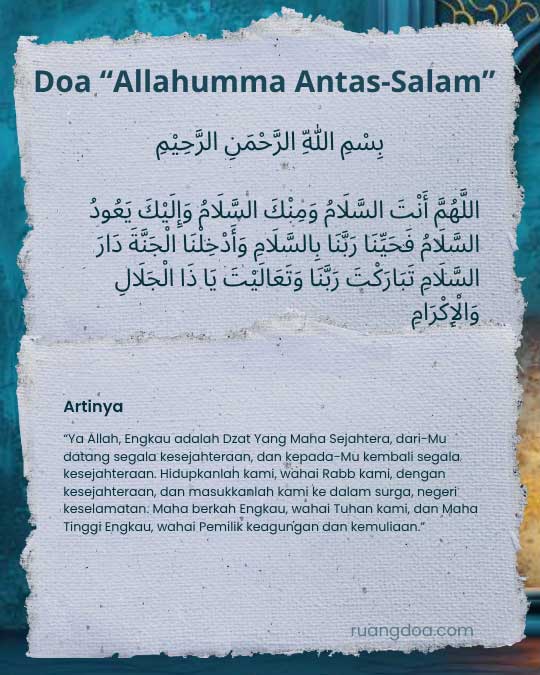 Doa “Allahumma Antas-Salam”
بِسْمِ اللَّهِ الرَّحْمَنِ الرَّحِيْمِ
اللَّهُمَّ أَنْتَ السَّلَامُ وَمِنْكَ السَّلَامُ وَإِلَيْكَ يَعُودُ
السَّلَامُ فَحَيِّنَا رَبَّنَا بِالسَّلَامِ وَأَدْخِلْنَا الْجَنَّةَ دَارَ
السَّلَامِ تَبَارَكْتَ رَبَّنَا وَتَعَالَيْتَ يَا ذَا الْجَلَالِ
وَالْإِكْرَامِ
Artinya
“Ya Allah, Engkau adalah Dzat Yang Maha Sejahtera, dari-Mu
datang segala kesejahteraan, dan kepada-Mu kembali segala
kesejahteraan. Hidupkanlah kami, wahai Rabb kami, dengan
kesejahteraan, dan masukkanlah kami ke dalam surga, negeri
keselamatan. Maha berkah Engkau, wahai Tuhan kami, dan Maha
Tinggi Engkau, wahai Pemilik keagungan dan kemuliaan.”
ruangdoa.com